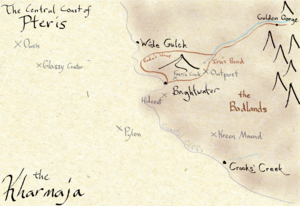 The Central Coast of
Pteris
Golden Gorge
Wide Gulch
Oasis
Glassy Crater
Iron Bend
Outpost
Brightwater
Hideout
the
Badlands
Pylon
Kreen Mound
Crooks' Crest
the
Kharmaja